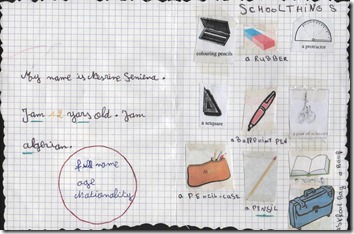 SCHOOL THINGS
colouring pencils
a RUBBER
a protractor
My name is
I am 12 years old. I am
algerian.
a setsquare
a Ballpoint PEN
a pair of scissors
full name
age
Nationality
a PENCIL-CASE
a PENSIL
a BOOK